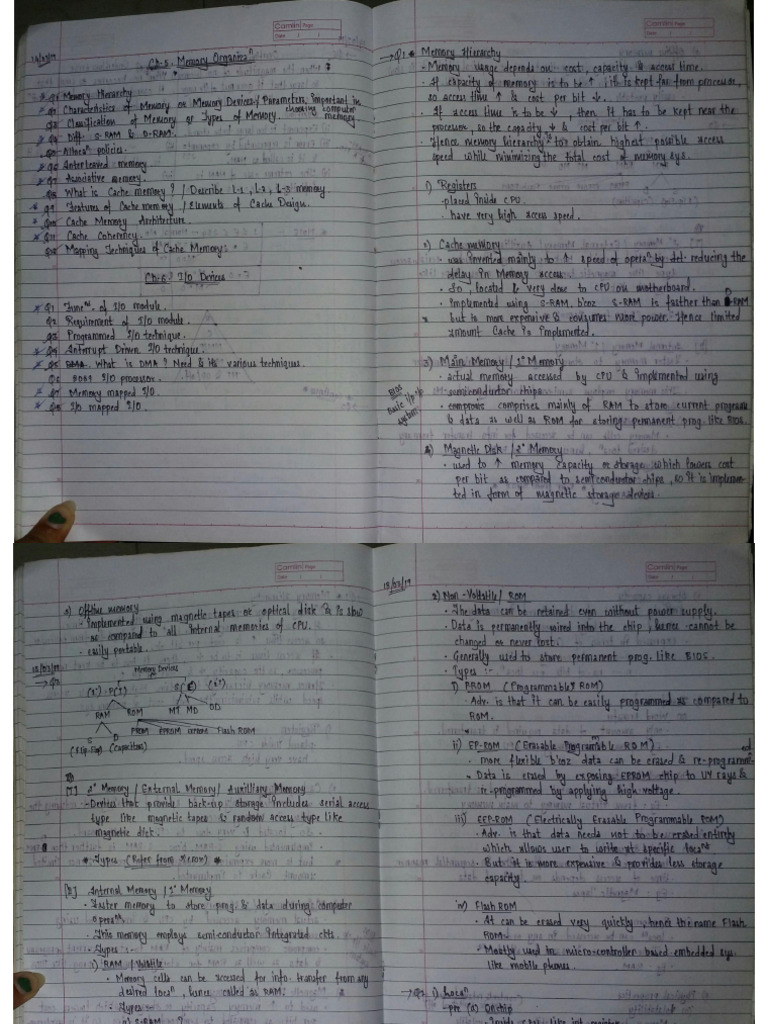 Camlin Page
Date
12/03/19
Ch-5. Memory Organizaⁿ
Q1 Memory Hierarchy
Q1 Characteristics of Memory or Memory Devices / Parameters important in choosing computer memory
Q2 Classification of Memory or Types of Memory.
Q4 Diff. S-RAM & D-RAM.
Q5 Allocaⁿ policies.
Q6 Interleaved memory
Q7 Associative memory.
Q8 What is Cache memory? / Describe L-1, L-2, L-3 memory.
Q9 Features of Cache memory / Elements of Cache Design.
Q10 Cache Memory Architecture.
Q11 Cache Coherency.
Q12 Mapping Techniques of Cache Memory.
Ch-6. I/O Devices
Q1 Funcⁿ. of I/O module.
Q2 Requirement of I/O module.
Q3 Programmed I/O technique.
Q4 Interrupt Driven I/O technique.
Q5 What is DMA? Need & its various techniques.
Q6 I/O processor.
Q7 Memory mapped I/O.
Q8 I/O mapped I/O.
Camlin Page
Date
→Q1 • Memory Hierarchy
• Memory usage depends on cost, capacity & access time.
• If capacity of memory is to be ↑, it is kept far from processor,
so access time ↑ & cost per bit ↓.
• If access time is to be ↓, then it has to be kept near the
processor, so the capacity ↓ & cost per bit ↑.
• Hence memory hierarchy is to obtain highest possible access
speed while minimizing the total cost of memory sys.
1) Registers
- placed inside CPU.
• have very high access speed.
2) Cache memory
• was invented mainly to ↑ speed of operaⁿ by reducing the
delay in memory access.
• So, located very close to CPU on motherboard.
• Implemented using S-RAM b'coz S-RAM is fasther than D-RAM
but is more expensive & consumes more power. Hence limited
amount Cache is implemented.
3) Main Memory / 1° Memory
• actual memory accessed by CPU & implemented using
semiconductor chips.
• comprises mainly of RAM to store current programs
& data as well as ROM for storing permanent prog. like BIOS.
BIOS
Basic i/p o/p
system
4) Magnetic Disk / 2° Memory
• used to ↑ memory capacity or storage which lowers cost
per bit as compared to semiconductor chips, so it is implemen-
ted in form of magnetic storage devices.
Camlin Page
Date
5) Offline memory
- Implemented using magnetic tapes or optical disk & is slow
as compared to all internal memories of CPU.
- easily portable.
12/03/19
→Q3
Memory Devices
P(I) S(E)
RAM ROM MT MD OD
S D PROM EPROM EEPROM Flash ROM
(Flip-Flop) (Capacitors)
[I] 2° Memory / External Memory / Auxilliary Memory
- Devices that provide back-up storage includes serial access
type like magnetic tapes & random access type like
magnetic disk.
* Types (Refer from Xerox) *
[II] Internal Memory / 1° Memory
• Faster memory to store prog. & data during computer
operaⁿ.
• This memory employs semi-conductor integrated ckts.
• Types :-
1) RAM / Volatile
• Memory cells can be accessed for info. transfer from any
desired locaⁿ, hence called as RAM.
• Types
a) S-RAM
Camlin Page
Date
13/03/19
2) Non-Volatile / ROM
• The data can be retained even without power supply.
• Data is permanently wired into the chip, hence cannot be
changed or never lost.
• Generally used to store permanent prog. like BIOS.
• Types :-
i) PROM (Programmable ROM)
• Adv. is that it can be easily programmed as compared to
ROM.
ii) EP-ROM (Erasable Programmable ROM)
• more flexible b'coz data can be erased & re-programmed
• Data is erased by exposing EPROM chip to UV rays &
re-programmed by applying high voltage.
iii) EEP-ROM (Electrically Erasable Programmable ROM)
• Adv. is that data needs not to be erased entirely
which allows user to write at specific locaⁿ
• But it is more expensive & provides less storage
capacity.
iv) Flash ROM
• It can be erased very quickly, hence the name Flash
ROM.
• Mostly used in micro-controller based embedded sys.
like mobile phones.
→Q2 1) Locaⁿ
(a) Onchip